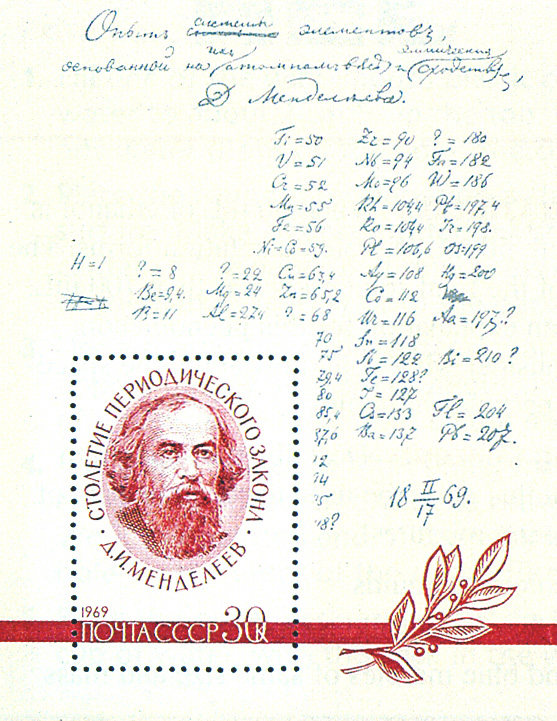 Опытъ системы элементовъ,
основанной на ихъ атомномъ вѣсѣ и химическомъ сродствѣ,
Д. Менделѣева.
Ti=50 Zr=90 ?=180
V=51 Nb=94 Ta=182
Cr=52 Mo=96 W=186
Mn=55 Rh=104,4 Pt=197,4
Fe=56 Ro=104,4 Ir=198.
Ni=Co=59. Pl=106,6 Os=199
H=1 ?=8 ?=22 Cu=63,4 Ag=108 Hg=200
Be=9,4. Mg=24 Zn=65,2 Cd=112
B=11 Al=27,4 ?=68 Ur=116 Au=197?
70, Sn=118
75 Sb=122 Bi=210?
79,4 Te=128?
80 J=127
85,4 Cs=133 Tl=204
87,6 Ba=137 Pb=207.
18 II/17 69.
СТОЛЕТИЕ ПЕРИОДИЧЕСКОГО ЗАКОНА
· Д.И.МЕНДЕЛЕЕВ ·
1969
ПОЧТА СССР 30к